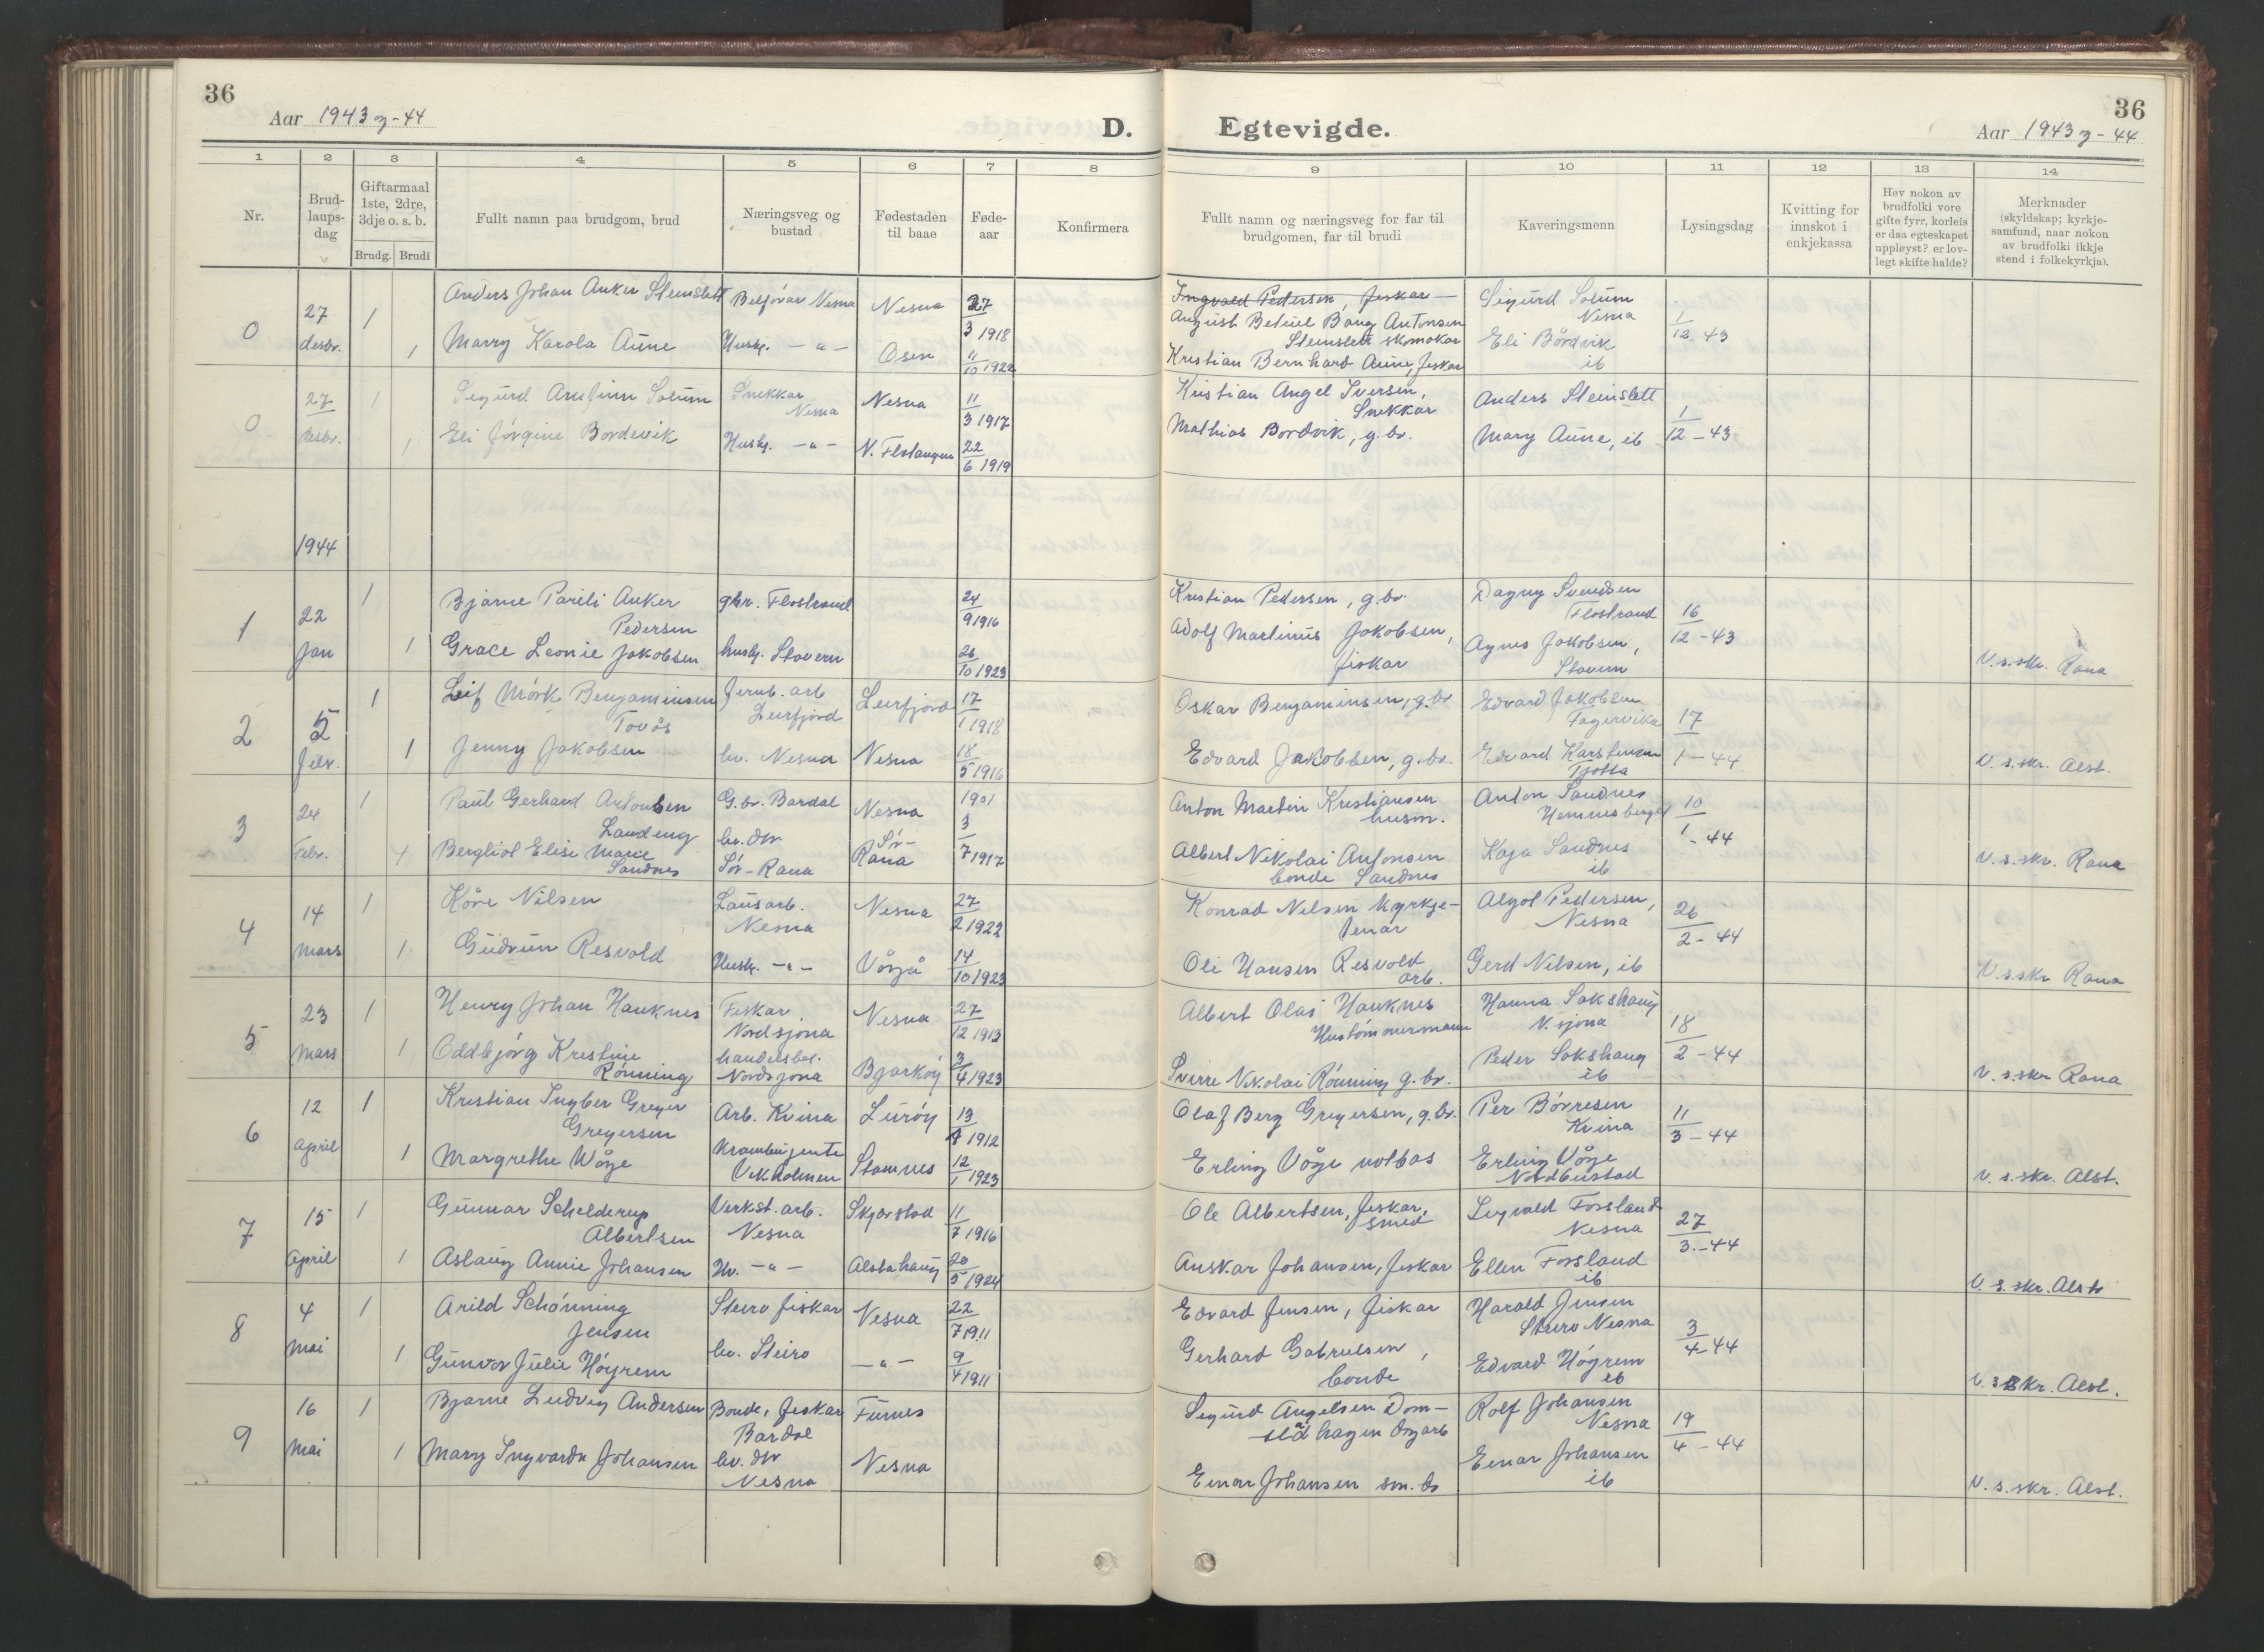 36
Aar 1943 og - 44
D.
Egtevigde.
36
Aar 1943 og - 44
1 2 3 4 5 6 7 8 9 10 11 12 13 14
Nr.
Brud-
laups-
dag
Giftarmaal
1ste, 2dre,
3dje o. s. b.
Brudg. Brudi
Fullt namn paa brudgom, brud
Næringsveg og
bustad
Fødestaden
til baae
Føde-
aar
Konfirmera
Fullt namn og næringsveg for far til
brudgomen, far til brudi
Kaveringsmenn
Lysingsdag
Kvitting for
innskot i
enkjekassa
Hev nokon av
brudfolki vore
gifte fyrr, korleis
er daa egteskapet
uppløyst? er lov-
legt skifte halde?
Merknader
(skyldskap; kyrkje-
samfund, naar nokon
av brudfolki ikkje
stend i folkekyrkja).
0
27
desbr.
1
1
Anders Johan Anker Steinslett
Marry Karola Aune
Nesna
Hushj. - " -
Nesna
Osen
27
3 1918
11
10 1922
Ingvald Pedersen, fiskar -
August Betuel Bang Antonsen
Steinslett skomakar
Kristian Bernhard Aune, fiskar
Sigurd Solum
Nesna
Eli Bordvik
ib
1
12 43
0
27
desbr.
1
1
Sigurd Arnfinn Solum
Eli Jórgine Bordevik
Snekkar
Nesna
Hushj. - " -
Nesna
N. Flostangen
11
3 1917
22
6 1919
Kristian Angel Iversen,
Snekkar
Mathias Bordvik, g.br.
Anders Steinslett
Mary Aune, ib
1
12 - 43
1944
1
22
jan
1
1
Bjarne Pareli Anker
Pedersen
Grace Leonie Jakobsen
gbr. Flostrand
hushj. Stovern
24
9 1916
26
10 1923
Kristian Pedersen, g.br.
Adolf Martinus Jakobsen,
fiskar
Dagny Svendsen
Flostrand
Agnes Jakobsen,
Stovern
16
12 - 43
V.s.skr. Rana
2
5
febr.
1
1
Leif Mørk Benjaminsen
Tovås
Jenny Jakobsen
Jernb. arb
Leirfjord
hv. Nesna
Leirfjord
Nesna
17
1 1918
18
5 1916
Oskar Benjaminsen, g.br
Edvard Jakobsen, g.br.
Edvard Jakobsen
Fagervika
Edvard Karstensen
Tjøtta
17
1 - 44
V.s.skr. Alst.
3
24
Febr.
1
1
Paul Gerhard Antonsen
Landeng
Bergliot Elise Marie
Sandnes
G.br. Bardal
hv. dtr
Sór-Rana
Nesna
Sór-
Rana
1901
3
7 1917
Anton Martin Kristiansen
husm.
Albert Nikolai Antonsen
bonde Sandnes
Anton Sandnes
Hemnesberget
Kaja Sandnes
ib
10
1 - 44
V.s.skr. Rana
4
14
Mars
1
1
Kåre Nilsen
Gudrun Resvold
Lausarb.
Nesna
Hushj. - " -
Nesna
Vågå
27
2 1922
14
10 1923
Konrad Nilsen kyrkje-
tenar
Oli Hansen Resvold
arb.
Algot Pedersen,
Nesna
Gerd Nilsen, ib
26
2 - 44
V.s.skr Rana
5
23
Mars
1
1
Henry Johan Hauknes
Oddbjórg Kristine
Rónning
Fiskar
Nordsjona
handelsbet.
Nordsjona
Nesna
Bjarkóy
27
12 1913
3
4 1923
Albert Olai Hauknes
Hustómmermann
Sverre Nikolai Rónning g.br.
Hanna Sakshaug
N. sjona
Peder Sakshaug
ib
18
2 - 44
V.s.skr Rana
6
12
April
1
1
Kristian Ingber Greger
Gregersen
Margrethe Våge
Arb. Kvina
Krambujente
Vikholmen
Luróy
Stamnes
13
4 1912
12
1 1923
Olaf Berg Gregersen, g.br.
Erling Våge notbas
Per Bórresen
Kvina
Erling Våge
11
3 - 44
V.s.skr. Alst.
7
15
April
1
1
Gunnar Schelderup
Albertsen
Aslaug Annie Johansen
Verkst. arb.
Nesna
Hv. - " -
Skjerstad
Alstahaug
11
7 1916
20
5 1924
Ole Albertsen, fiskar,
smed
Anskar Johansen, fiskar
Sigvald Forsland
Nesna
Ellen Forsland
ib
27
3. - 44
V.s.skr. Alst
8
4
mai
1
1
Arild Schónning
Jensen
Gunvor Julie Hógrem
Steiro fiskar
hv. Steiro
Nesna
- " -
22
7 1911
9
4 1911
Edvard Jensen, fiskar
Gerhard Gabrielsen,
bonde
Harald Jensen
Steiro Nesna
Edvard Hógrem
ib
3
4 - 44
V.s.skr. Alst.
9
16
Mai
1
1
Bjarne Ludvig Andersen
Mary Ingvarda Johansen
Bonde, fiskar
Bardal
hv. dtr
Nesna
Furnes
Nesna
Sigurd Angelsen Dom-
stadhagen
Einar Johansen sm. br
Rolf Johansen
Nesna
Einar Johansen
ib
19
4 - 44
V.s.skr. Alst.